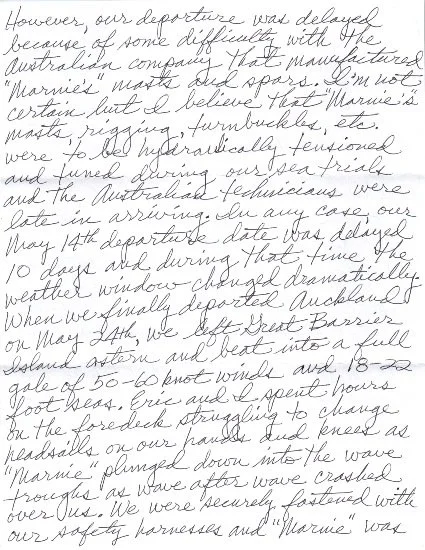 However, our departure was delayed
because of some difficulty with the
Australian company that manufactured
"Marnie's" masts and spars. I'm not
certain but I believe that "Marnie's"
masts, rigging, turnbuckles, etc.
were to be hydraulically tensioned
and tuned during our sea trials
and the Australian technicians were
late in arriving. In any case, our
May 14th departure date was delayed
10 days and during that time the
weather window changed dramatically.
When we finally departed Auckland
on May 24th, we left Great Barrier
Island astern and beat into a full
gale of 50-60 knot winds and 18-22
foot seas. Eric and I spent hours
on the foredeck struggling to change
headsails on our hands and knees as
"Marnie" plunged down into the wave
troughs as wave after wave crashed
over us. We were securely fastened with
our safety harnesses and "Marnie" was